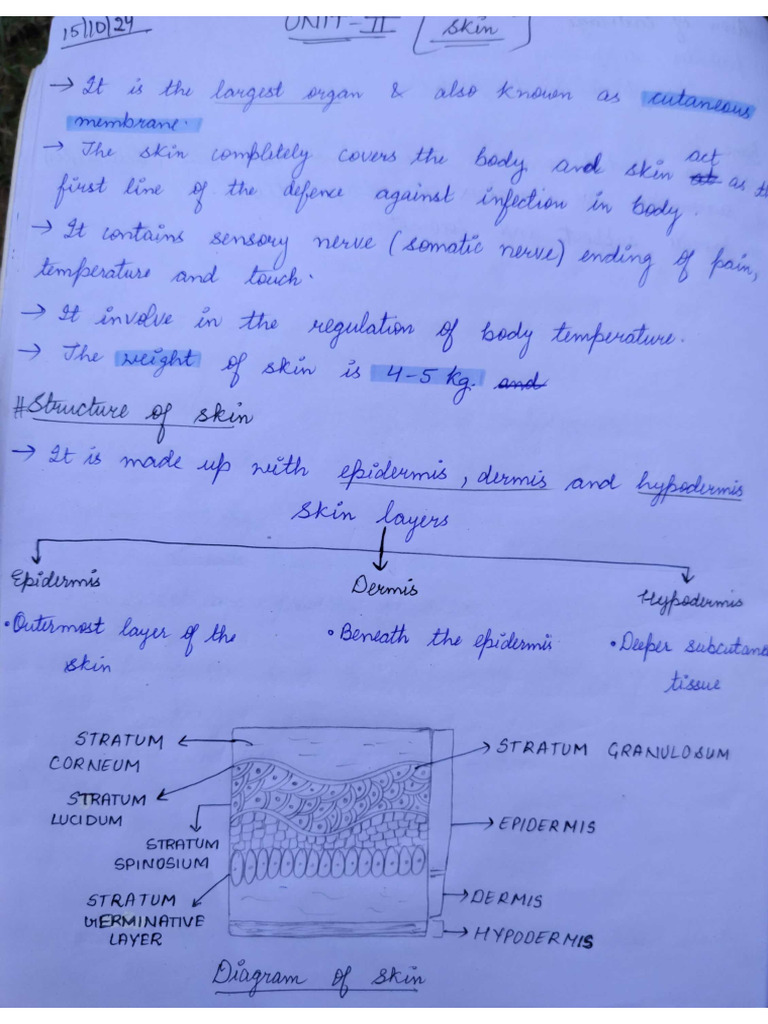 15/10/24
UNIT-II
Skin
→ It is the largest organ & also known as cutaneous
membrane.
→ The skin completely covers the body and skin act as th
first line of the defence against infection in body.
→ It contains sensory nerve (somatic nerve) ending of pain,
temperature and touch.
→ It involve in the regulation of body temperature.
→ The weight of skin is 4-5 Kg. and
# Structure of skin
→ It is made up with epidermis, dermis and hypodermis
Skin layers
Epidermis Dermis Hypodermis
• Outermost layer of the skin
• Beneath the epidermis
• Deeper subcutane tissue
STRATUM CORNEUM
STRATUM GRANULOSUM
STRATUM LUCIDUM
EPIDERMIS
STRATUM SPINOSIUM
STRATUM GERMINATIVE LAYER
DERMIS
HYPODERMIS
Diagram of skin